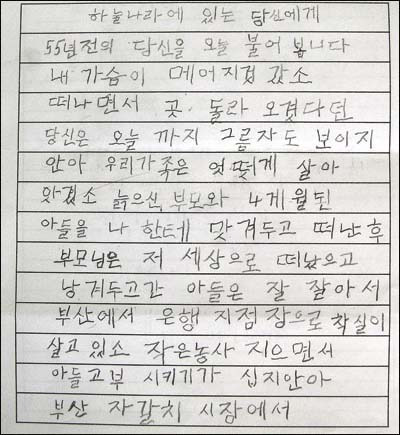 하늘나라에 있는 당신에게
55년전의 당신을 오늘 불어 봅니다
내 가슴이 메어지겁 갔소
떠나면서 곳. 돌라 오겠다던
당신은 오늘 까지 그름자도 보이지
안아 우리가 죽은 엇떻게 살아
왔겠소 늙으신 부모와 4게월된
아들을 나 한테 맛겨두고 떠난후
부모님은 저 세상으로 떠났으고
낭겨두고간 아들은 잘 잘아서
부산에서 은행 지점장으로 착실이
살고 있소 작은농사 지으면서
아들고부 시키기가 십지안아
부산 자갈치 시장에서